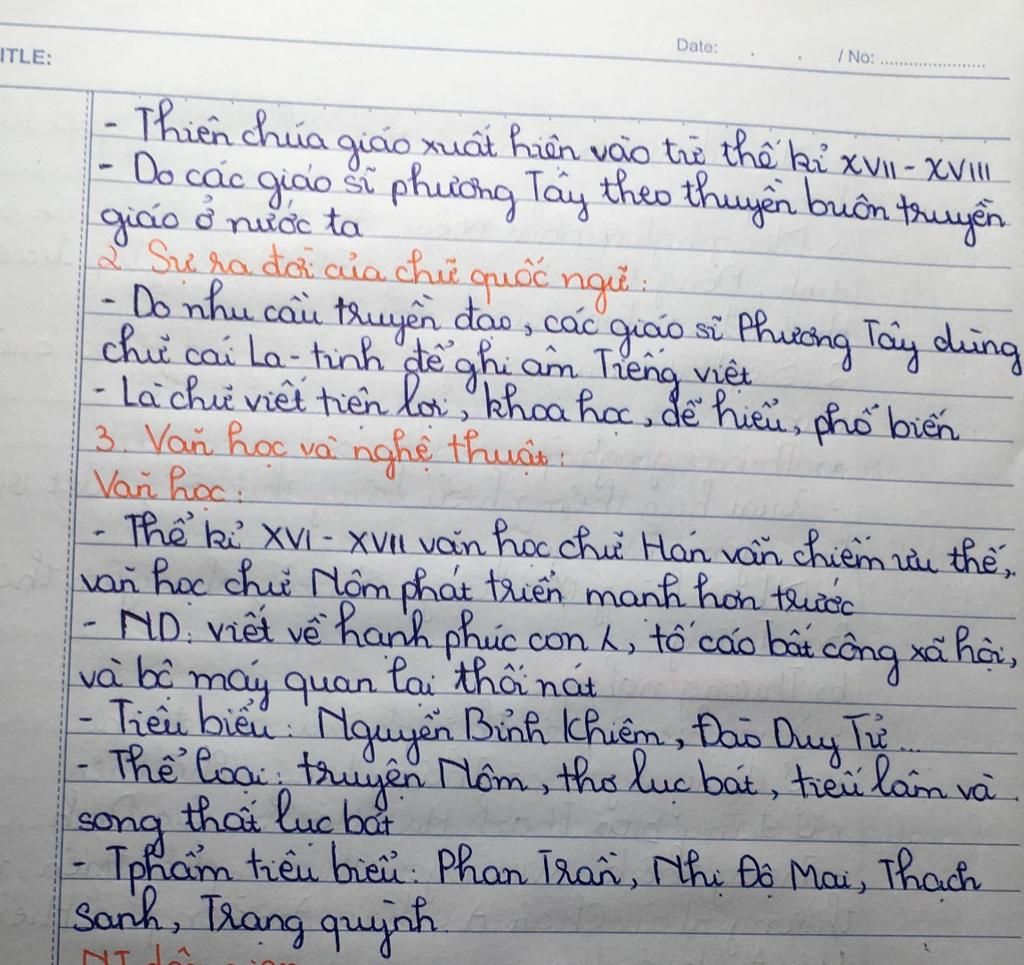 Date: . . / No: ......................
ITLE:
- Thiên chúa giáo xuất hiện vào từ thế kỉ XVII - XVIII
- Do các giáo sĩ phương Tây theo thuyền buôn truyền
giáo ở nước ta
2. Sự ra đời của chữ quốc ngữ:
- Do nhu cầu truyền đạo, các giáo sĩ Phương Tây dùng
chữ cái La-tinh để ghi âm Tiếng việt
- Là chữ viết tiện lợi, khoa học, dễ hiểu, phổ biến
3. Văn học và nghệ thuật:
Văn học:
- Thế kỉ XVI - XVII văn học chữ Hán vẫn chiếm ưu thế,
văn học chữ Nôm phát triển mạnh hơn trước
- ND: viết về hạnh phúc con λ, tố cáo bất công xã hội,
và bộ máy quan lại thối nát
- Tiêu biểu: Nguyễn Bỉnh Khiêm, Đào Duy Từ...
- Thể loại: truyện Nôm, thơ lục bát, tiếu lâm và
song thất lục bát
- Tphẩm tiêu biểu: Phan Trần, Nhị Độ Mai, Thạch
sanh, Trạng quỳnh
NT dân gian